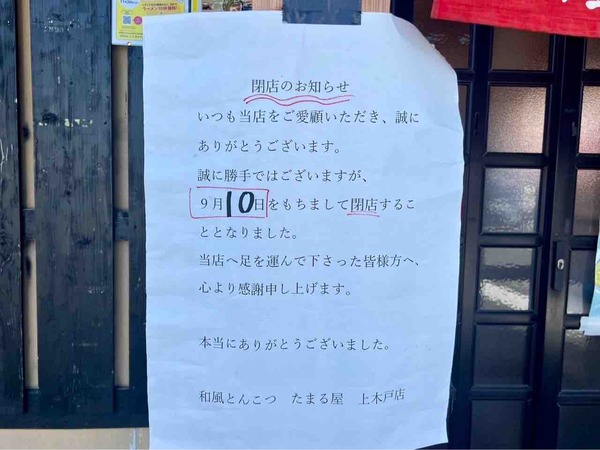 閉店のお知らせ
いつも当店をご愛顧いただき、誠に
ありがとうございます。
誠に勝手ではございますが、
9月10日をもちまして閉店するこ
ととなりました。
当店へ足を運んで下さった皆様方へ、
心より感謝申し上げます。
本当にありがとうございました。
和風とんこつ たまる屋 上木戸店